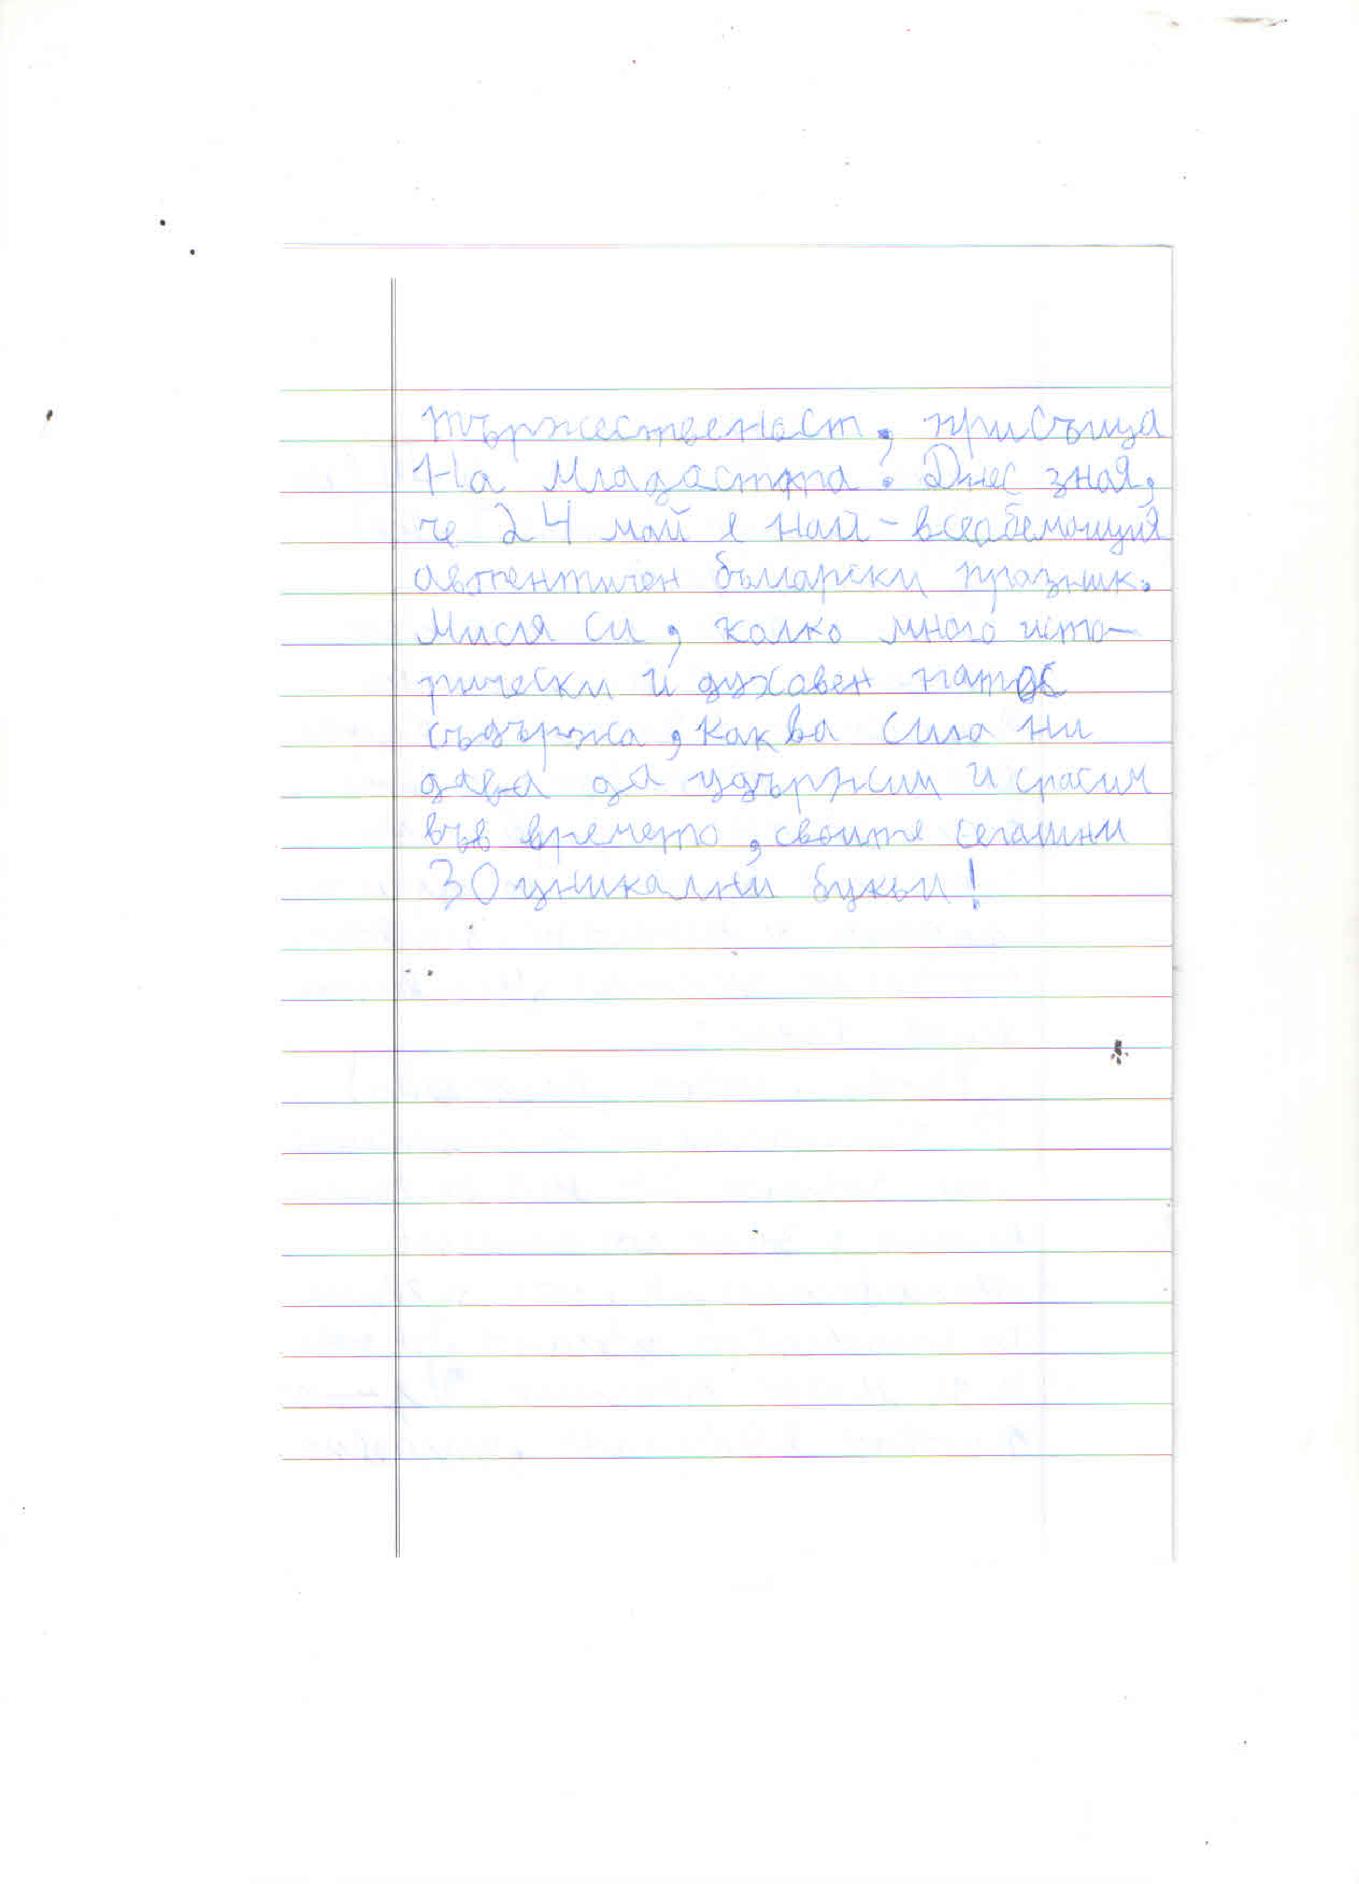 тържественаст, присъща
На младастта. Днес зная,
че 24 май е най-всеабемащия
автентичен български празник.
Мисля си, колко много исто-
рически и духавен патос
съдържа, каква сила ни
дава да удържим и спасим
във времето, своите сегашни
30 уникални букви!